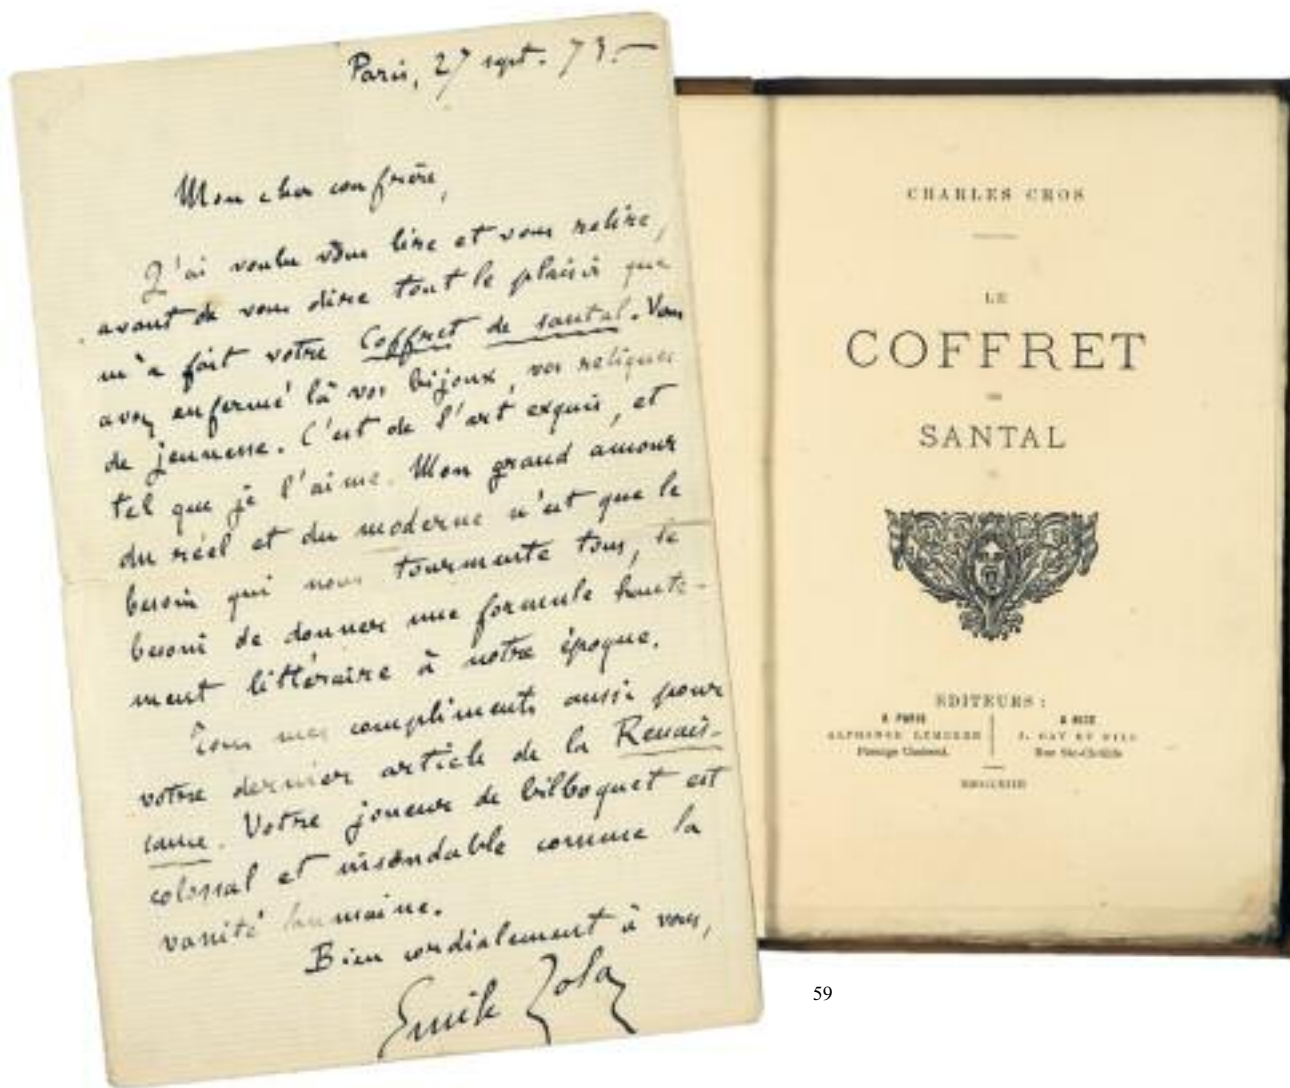 Paris, 27 sept. 73.—
Mon cher confrère,
J'ai voulu vous lire et vous relire,
avant de vous dire tout le plaisir que
m'a fait votre Coffret de santal. Vous
avez enfermé là vos bijoux, vos reliques
de jeunesse. C'est de l'art exquis, et
tel que je l'aime. Mon grand amour
du réel et du moderne n'est que le
besoin qui nous tourmente tous, le
besoin de donner une formule haute-
ment littéraire à notre époque.
Tous mes compliments aussi pour
votre dernier article de la Renais-
sance. Votre joueur de bilboquet est
colossal et insondable comme la
vanité humaine.
Bien cordialement à vous,
Emile Zola
CHARLES CROS
LE
COFFRET
DE
SANTAL
EDITEURS :
A PARIS
ALPHONSE LEMERRE
Passage Choiseul.
A NICE
J. GAY ET FILS
Rue Ste-Clotilde
59